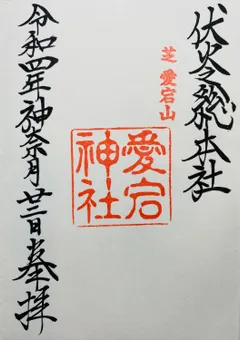 伏火之総本社
芝 愛宕山
愛宕
神社
令和四年神奈月廿二日奉拝